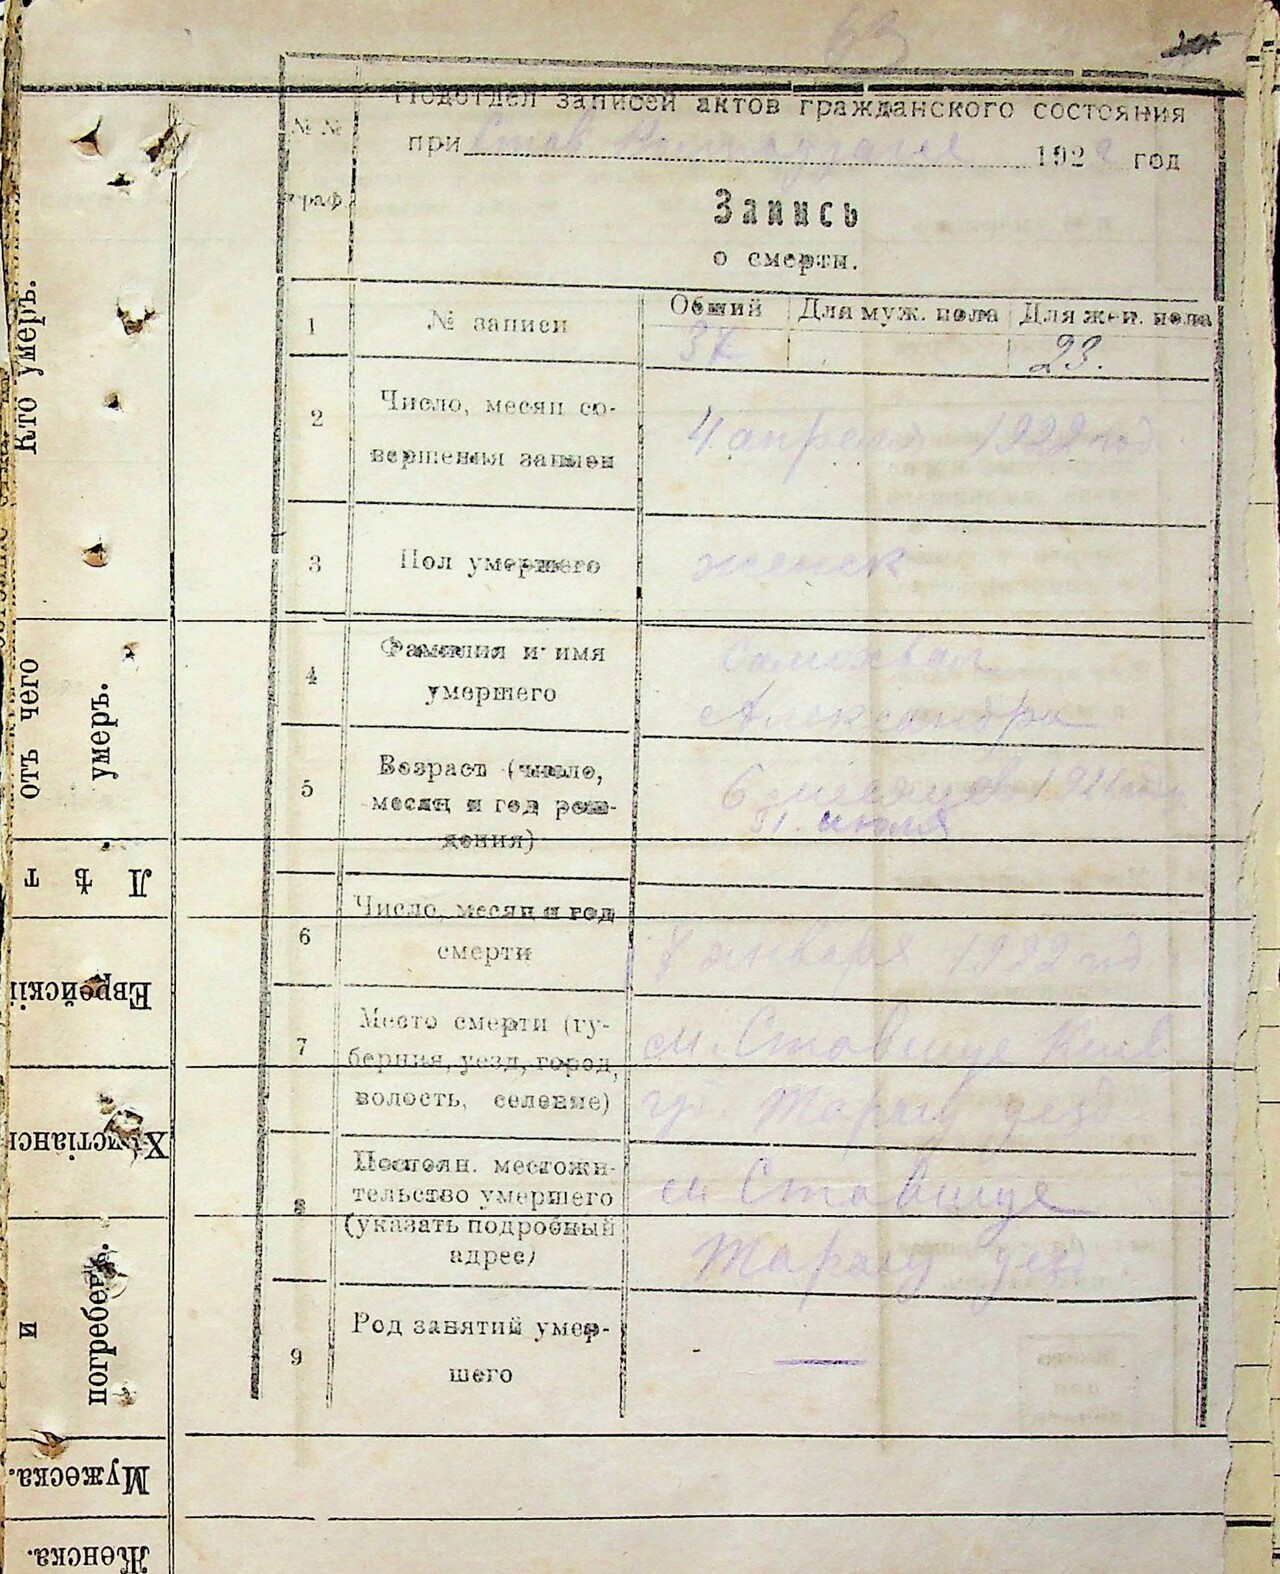 63
Подотдел записей актов гражданского состояния
при Став 1922 год
№№ граф.
Запись
о смерти.
1 № записи Общий Для муж. пола Для жен. пола
23.
2 Число, месяц со-
вершения записи
4 апреля 1922 год
3 Пол умершего женск
4 Фамилия и имя
умершего
Самохвал
Александра
5 Возраст (число,
месяц и год рож-
дения)
6 месяцев 1921 года
31. июля
6 Число, месяц и год
смерти
января 1922 год
7 Место смерти (гу-
берния, уезд, город,
волость, селение)
м. Ставище Киев
губ. Таращ уезд
8 Постоян. местожи-
тельство умершего
(указать подробный
адрес)
м Ставище
Таращ уезд
9 Род занятий умер-
шего
—
Кто умеръ.
отъ чего
умеръ.
Лѣт
Еврейскій
Христіанск
и
погребенъ.
Мужеска.
Женска.